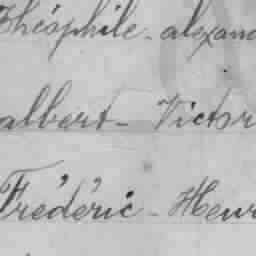 Théophile - alexand
albert - Victor
Frédéric - Henr